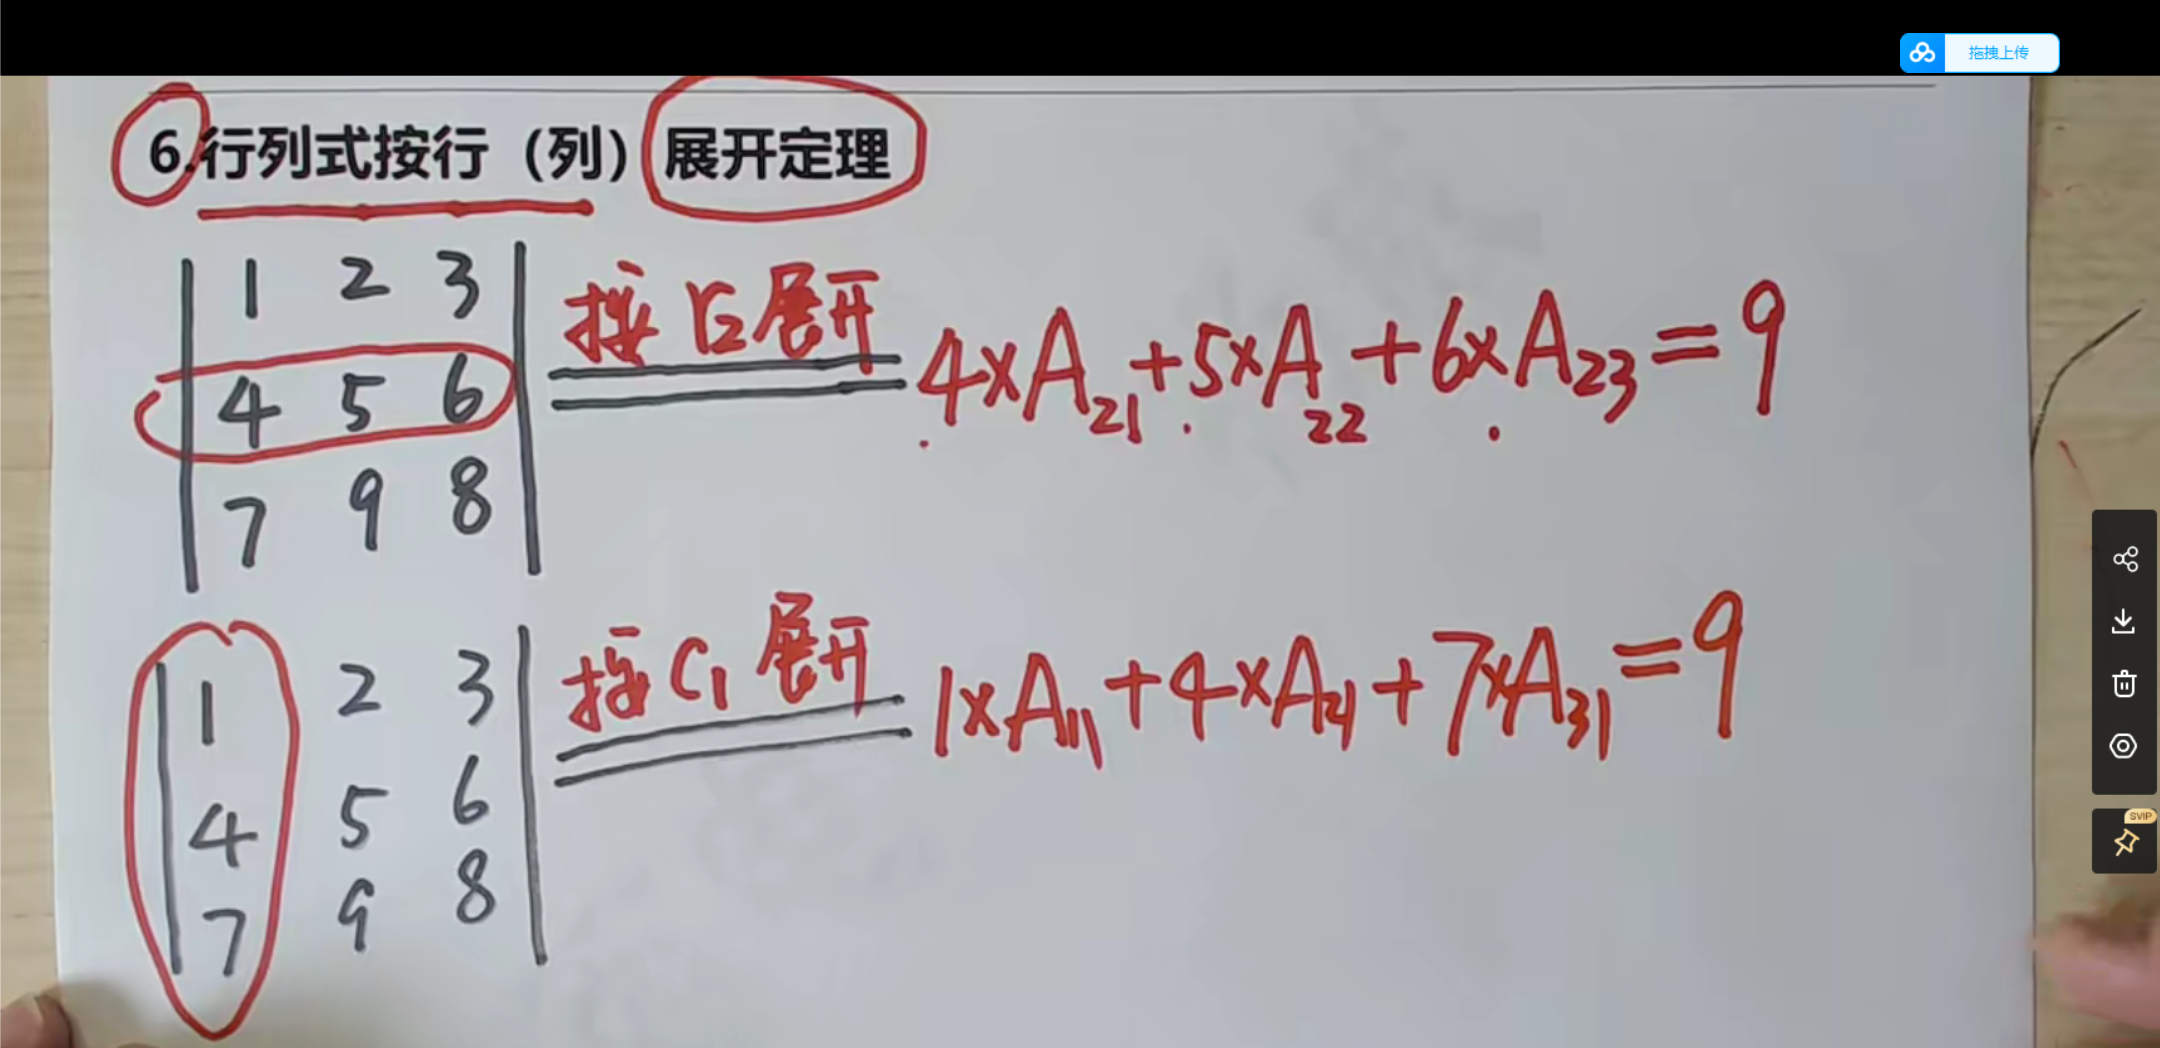 拖拽上传
6.行列式按行（列）展开定理
1 2 3
4 5 6
7 9 8
按r2展开 4×A21+5×A22+6×A23=9
1 2 3
4 5 6
7 9 8
按C1展开 1×A11+4×A21+7×A31=9
SVIP